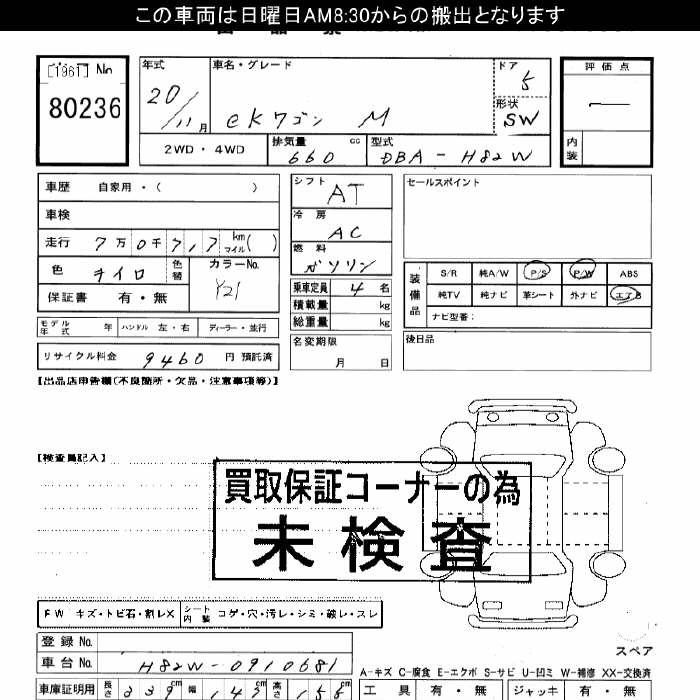 この車両は日曜日AM8:30からの搬出となります
[1961] No 80236
年式 20/11月
車名・グレード eKワゴン M
ドア 5
形状 SW
評価点 ―
内装
2WD・4WD
排気量 660 cc
型式 DBA-H82W
車歴 自家用・( )
車検
走行 7万0千717 km マイル( )
色 キイロ 色替 カラーNo. Y21
保証書 有・無
シフト AT
冷房 AC
燃料 ガソリン
乗車定員 4名
積載量 kg
総重量 kg
セールスポイント
装備品 S/R 純A/W P/S P/W ABS
純TV 純ナビ 革シート 外ナビ エアB
ナビ型番:
モデル年式 年 ハンドル 左・右 ディーラー・並行
リサイクル料金 9460 円 預託済
名変期限 月 日
後日品
【出品店申告欄(不良箇所・欠品・注意事項等)】
【検査員記入】
買取保証コーナーの為
未検査
FW キズ・トビ石・割レX シート内装 コゲ・穴・汚レ・シミ・破レ・スレ
登録 No.
車台 No. H82W-0910681
スペア
A-キズ C-腐食 E-エクボ S-サビ U-凹ミ W-補修 XX-交換済
車庫証明用 長さ 339cm 幅 147cm 高さ 155cm
工具 有・無 ジャッキ 有・無